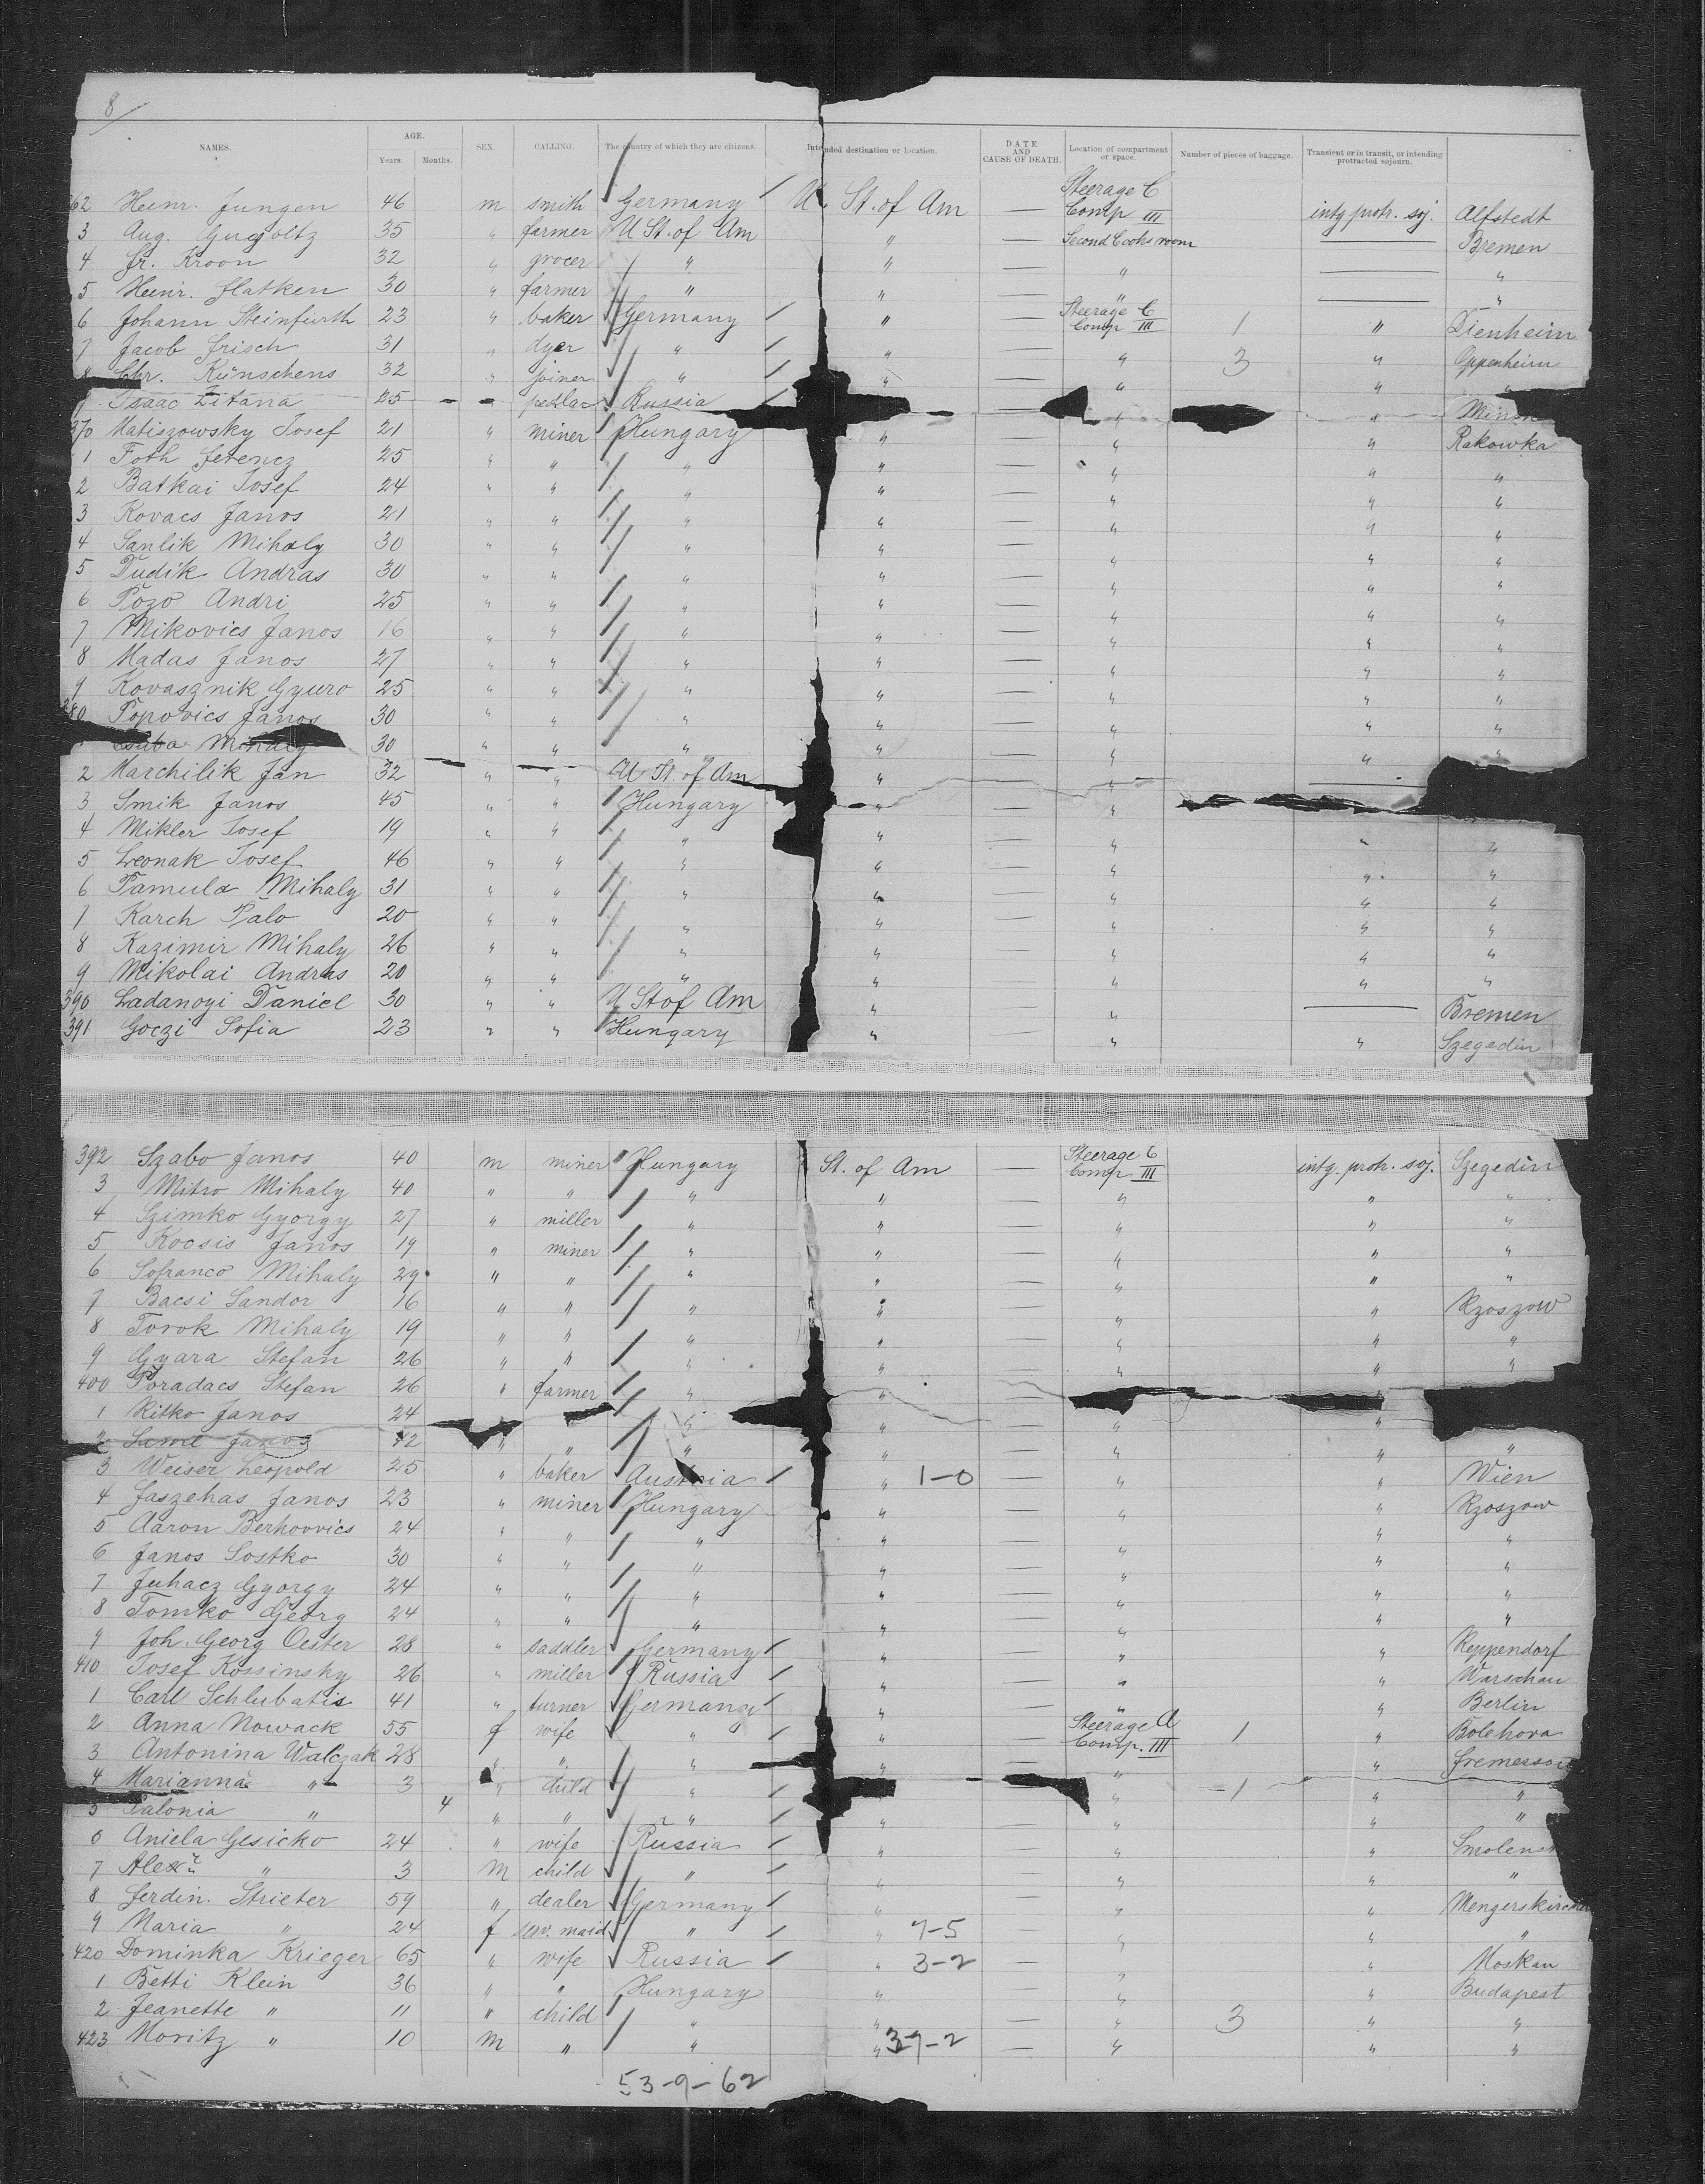 8/
NAMES. AGE. Years. Months. SEX. CALLING. The country of which they are citizens. Intended destination or location. DATE AND CAUSE OF DEATH. Location of compartment or space. Number of pieces of baggage. Transient or in transit, or intending protracted sojourn.
362 Heinr. Jungen 46 m smith Germany U. St. of Am — Steerage C Comp III intg protr. soj. Alfstedt
3 Aug. 35 " farmer U St. of Am " — Second Cooks room — Bremen
4 Fr. Kroon 32 " grocer " " — " — "
5 Heinr. Flatken 30 " farmer " " — " — "
6 Johann Steinfurth 23 " baker Germany " — Steerage C Comp III 1 " Dienheim
7 Jacob Frisch 31 " dyer " " — " 3 " Oppenheim
8 Chr. Künschens 32 " joiner " " — " " "
9 Isaac Zitana 25 pedlar Russia " " Minsk
370 Matiszowsky Josef 21 " miner Hungary " — " " Rakowka
1 Toth Ferencz 25 " " " " — " " "
2 Batkai Josef 24 " " " " — " " "
3 Kovacs Janos 21 " " " " — " " "
4 Sanlik Mihaly 30 " " " " — " " "
5 Dudik Andras 30 " " " " — " " "
6 Pozo Andri 25 " " " " — " " "
7 Mikovics Janos 16 " " " " — " " "
8 Madas Janos 27 " " " " — " " "
9 Kovasznik Gyuro 25 " " " " — " " "
380 Popovics Janos 30 " " " " — " " "
Csaba Mihaly 30 " " " " — " " "
2 Marchilik Jan 32 " " U St. of Am " — " —
3 Smik Janos 45 " " Hungary " — "
4 Mikler Josef 19 " " " " — " " "
5 Leonak Josef 46 " " " " — " " "
6 Tamula Mihaly 31 " " " " — " " "
7 Karch Palo 20 " " " " — " " "
8 Kazimir Mihaly 26 " " " " — " " "
9 Mikolai Andras 20 " " " " — " " "
390 Ladanoyi Daniel 30 " " U St of Am " — " — Bremen
391 Goczi Sofia 23 " " Hungary " " " Szegedin
392 Szabo Janos 40 m miner Hungary St. of Am — Steerage C Comp III intg. protr. soj. Szegedin
3 Mitro Mihaly 40 " " " " — " " "
4 Szimko Gyorgy 27 " miller " " — " " "
5 Kocsis Janos 19 " miner " " — " " "
6 Sofranco Mihaly 29 " " " " — " " "
7 Bacsi Sandor 16 " " " " — " " Rzoszow
8 Torok Mihaly 19 " " " " — " " "
9 Gyara Stefan 26 " " " " — " " "
400 Poradacs Stefan 26 " farmer " " — "
1 Ritko Janos 24 " " " — " "
2 Same Janos 42 " " " " — " " "
3 Weiser Leopold 25 " baker Austria " 1-0 — " " Wien
4 Jaszehas Janos 23 " miner Hungary " — " " Rzoszow
5 Aaron Berhovvics 24 " " " " — " " "
6 Janos Sostko 30 " " " " — " " "
7 Juhacz Gyorgy 24 " " " " — " " "
8 Tomko Georg 24 " " " " — " " "
9 Joh. Georg Oester 28 " saddler Germany " — " " Reppendorf
410 Josef Kossinsky 26 " miller Russia " — " " Warschau
1 Carl Schlubatis 41 " turner Germany " — " " Berlin
2 Anna Nowack 55 f wife " " — Steerage A Comp. III 1 " Bolehova
3 Antonina Walczak 28 " " " " — "
4 Marianna " 3 " child " " 1 "
5 Salonia " 4 " " " " — " " "
6 Aniela Gesicko 24 " wife Russia " — " " Smolensk
7 Alexr " 3 m child " " — " " "
8 Ferdin. Strieter 59 " dealer Germany " — " " Mengerskirchen
9 Maria " 24 f serv. maid " " 7-5 — " " "
420 Dominka Krieger 65 " wife Russia " 3-2 — " " Moskau
1 Betti Klein 36 " " Hungary " — " " Budapest
2 Jeanette " 11 " child " " — " 3 " "
423 Moritz " 10 m " " " 37-2 — " " "
53-9-62